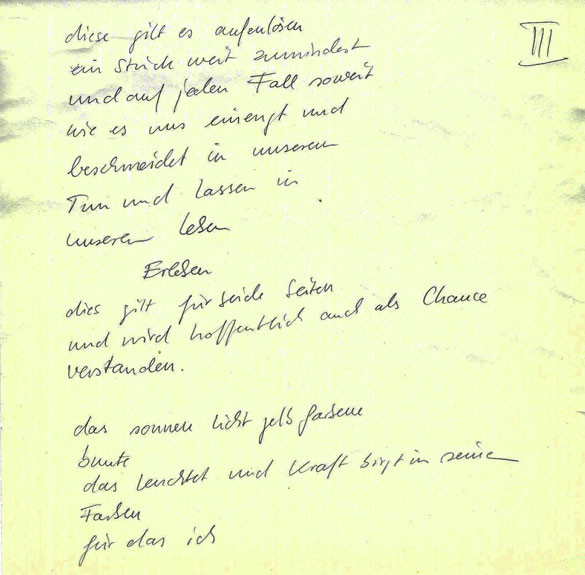 III
diese gilt es aufzulösen
ein Stück weit zumindest
und auf jeden Fall soweit
wie es uns einengt und
beschneidet in unserem
Tun und Lassen in
unserem Leben
Erleben
dies gilt für beide Seiten
und wird hoffentlich auch als Chance
verstanden.
das sonnen licht gelb farbene
bunte
das leuchtet und Kraft birgt in seine
Farben
für das ich